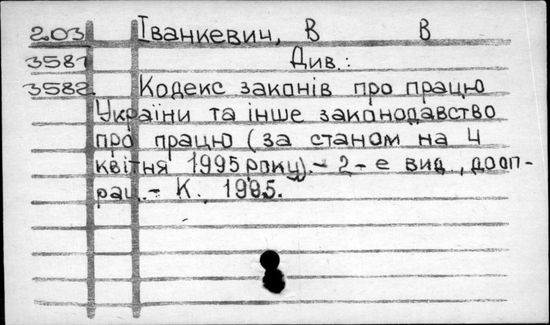 2.03 Іванкевич, В В
3581 Див.:
3582. Кодекс законів про працю
України та інше законодавство
про працю (за станом на 4
квітня 1995 року).- 2-е вид., дооп-
рац.- К. 1995.